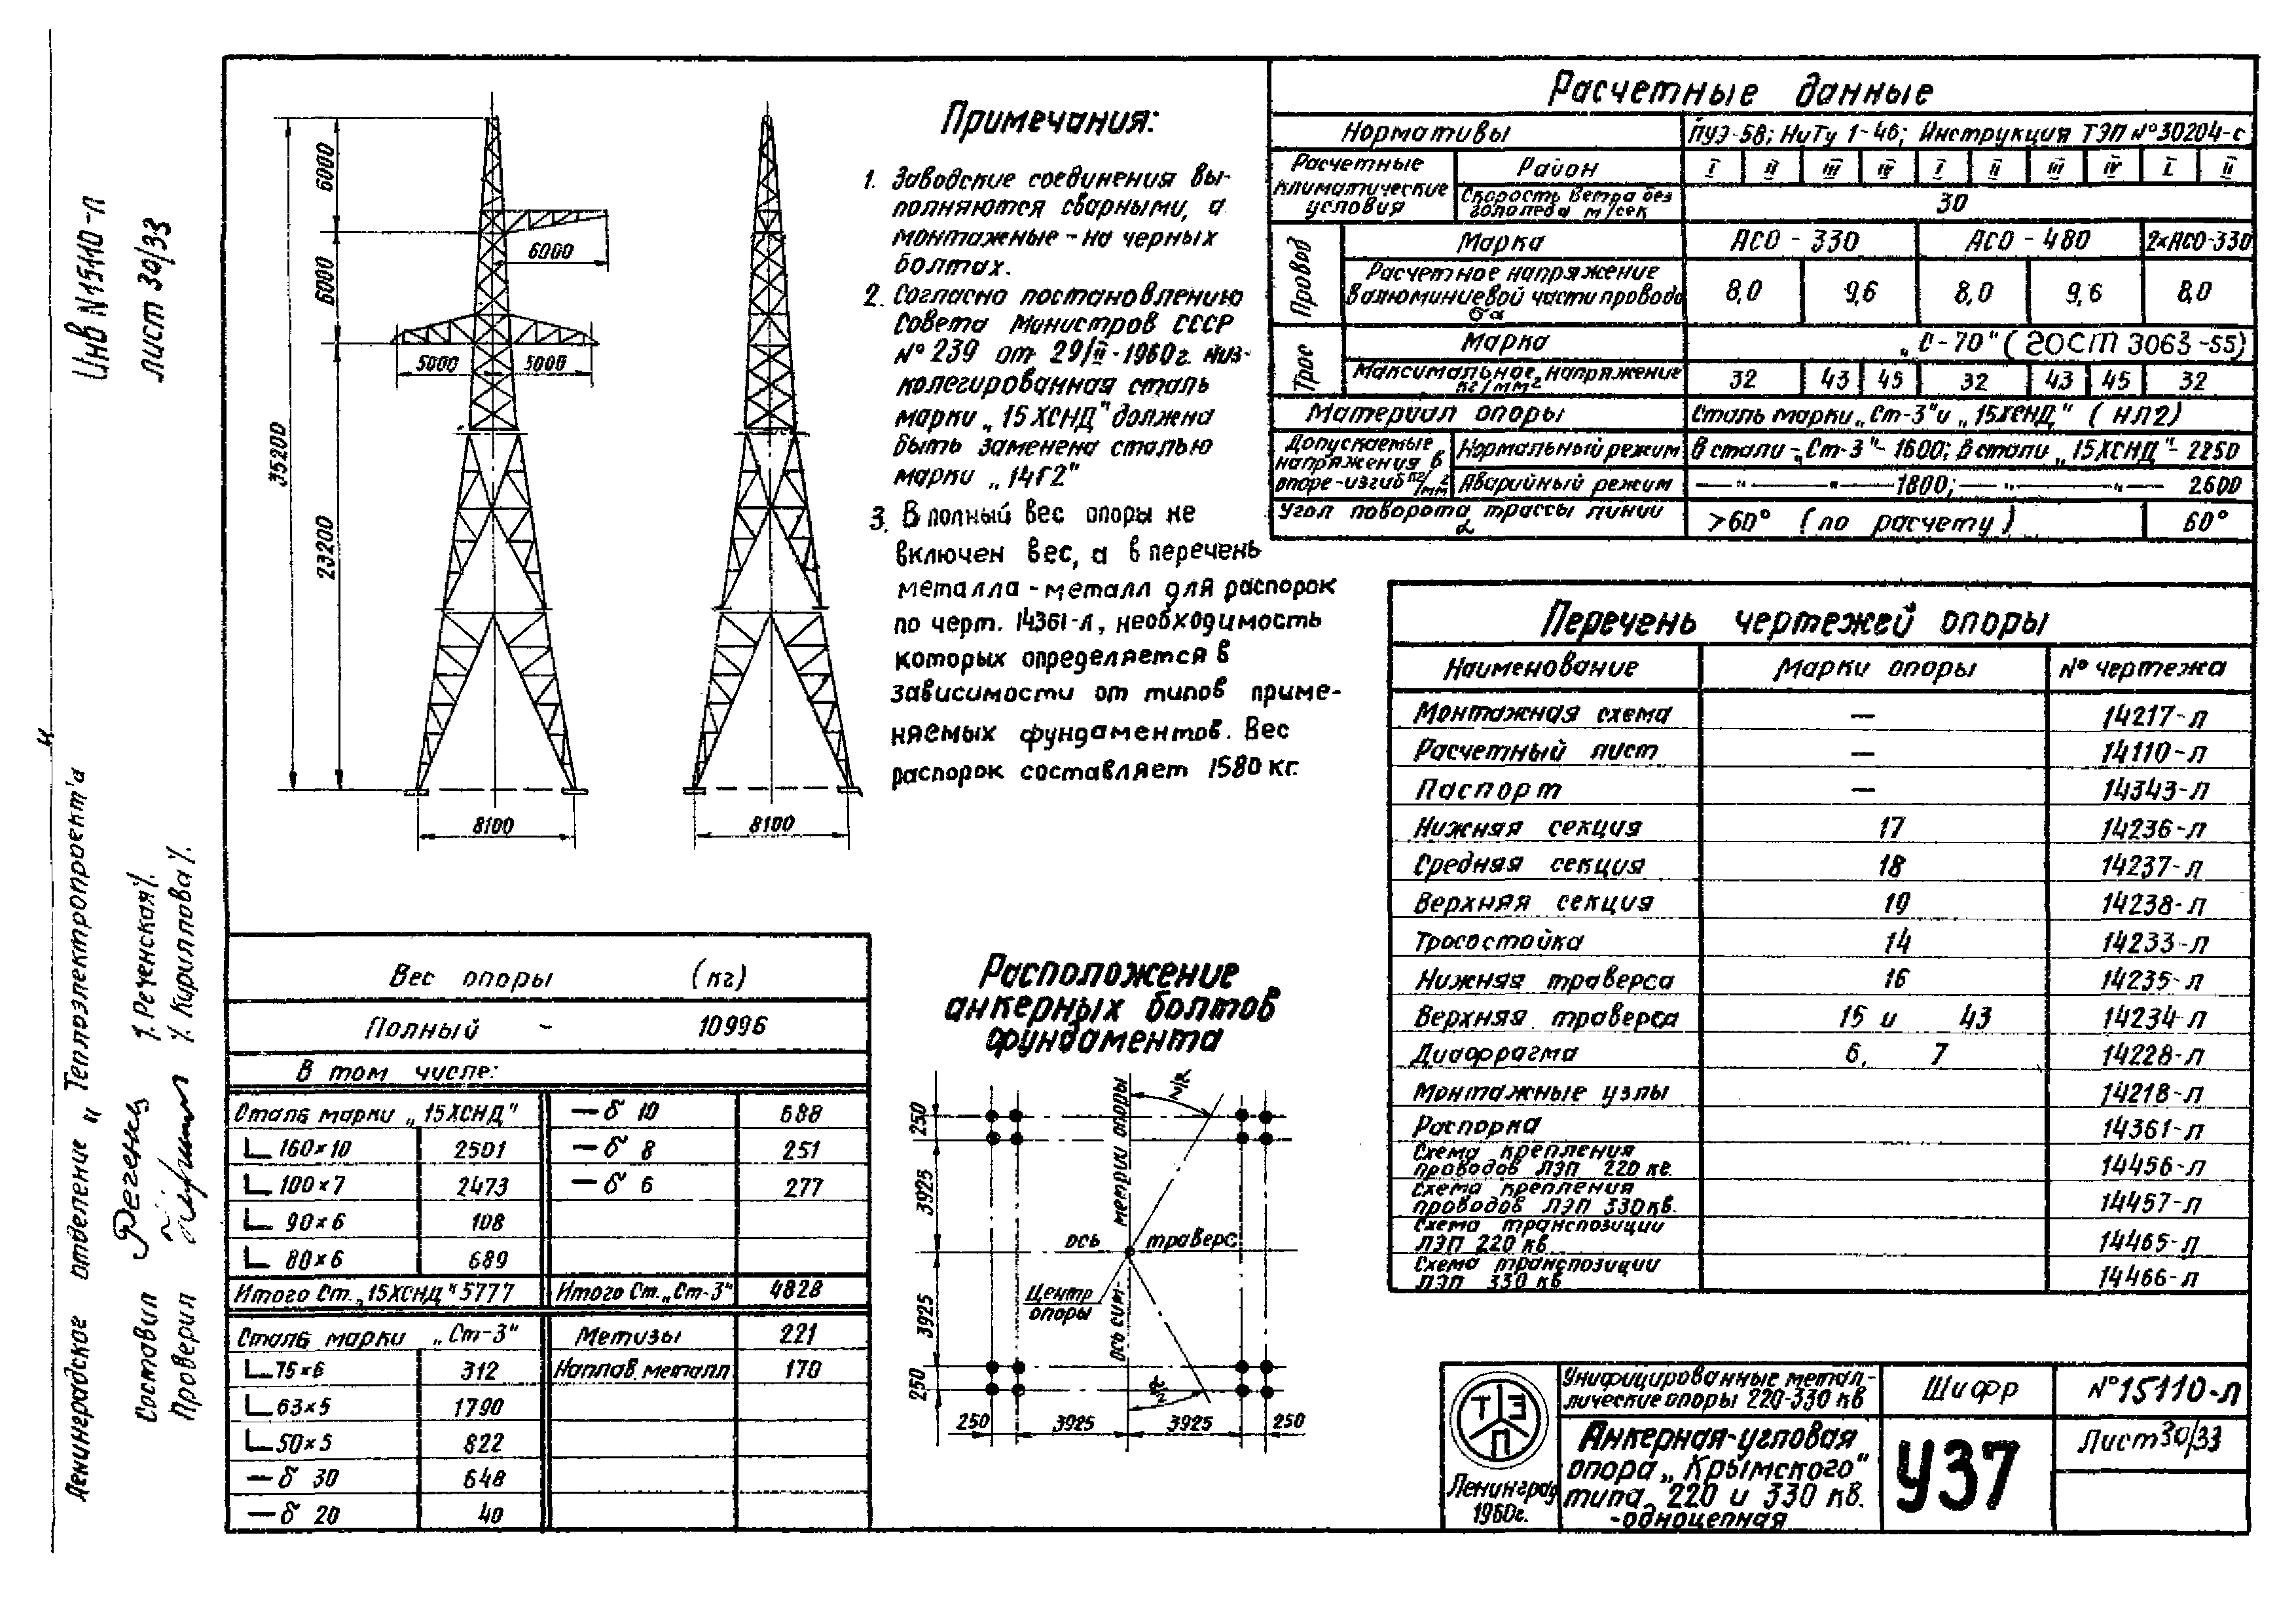 Инв N15110-л
лист 30/33
Ленинградское отделение „Теплоэлектропроект'а
Составил /. Реченская/.
Проверил /. Кириллова/.
35200
6000
6000
23200
6000
5000 5000
8100
8100
Примечания:
1. Заводские соединения вы-
полняются сварными, а
монтажные - на черных
болтах.
2. Согласно постановлению
Совета Министров СССР
№ 239 от 29/II-1960г. низ-
колегированная сталь
марки „15ХСНД" должна
быть заменена сталью
марки „14Г2"
3. В полный вес опоры не
включен вес, а в перечень
металла - металл для распорок
по черт. 14361-л, необходимость
которых определяется в
зависимости от типов приме-
няемых фундаментов. Вес
распорок составляет 1580 кг.
Расчетные данные
Нормативы ПУЭ-58; НиТу 1-46; Инструкция ТЭП №30204-с
Расчетные климатические условия
Район I II III IV I II III IV I II
Скорость ветра без гололеда м/сек 30
Провод
Марка АСО - 330 АСО - 480 2×АСО-330
Расчетное напряжение
в алюминиевой части провода
σа
8,0 9,6 8,0 9,6 8,0
Трос
Марка „С-70" (ГОСТ 3063-55)
Максимальное напряжение кг/мм² 32 43 45 32 43 45 32
Материал опоры Сталь марки „Ст-3" и „15ХСНД" (НЛ2)
Допускаемые напряжения в опоре-изгиб кг/мм²
Нормальный режим В стали -„Ст-3"- 1600; В стали „15ХСНД"- 2250
Аварийный режим — " — " — 1800; — " — " — 2600
Угол поворота трассы линии α >60° (по расчету) 60°
Перечень чертежей опоры
Наименование Марки опоры № чертежа
Монтажная схема — 14217-л
Расчетный лист — 14110-л
Паспорт — 14343-л
Нижняя секция 17 14236-л
Средняя секция 18 14237-л
Верхняя секция 19 14238-л
Тросостойка 14 14233-л
Нижняя траверса 16 14235-л
Верхняя траверса 15 и 43 14234-л
Диафрагма 6, 7 14228-л
Монтажные узлы 14218-л
Распорка 14361-л
Схема крепления
проводов ЛЭП 220 кв. 14456-л
Схема крепления
проводов ЛЭП 330кв. 14457-л
Схема транспозиции
ЛЭП 220 кв 14465-л
Схема транспозиции
ЛЭП 330 кв 14466-л
Вес опоры (кг)
Полный - 10996
В том числе:
Сталь марки „15ХСНД" — δ 10 688
∟160×10 2501 — δ 8 251
∟100×7 2473 — δ 6 277
∟90×6 108
∟80×6 689
Итого Ст. „15ХСНД" 5777 Итого Ст. „Ст-3" 4828
Сталь марки „Ст-3" Метизы 221
∟75×6 312 Наплав. металл 170
∟63×5 1790
∟50×5 822
— δ 30 648
— δ 20 40
Расположение
анкерных болтов
фундамента
250
3925
3925
250
ось симметрии опоры
α/2
ось траверс
Центр
опоры
α/2
250 3925 3925 250
ТЭП
Ленинград
1960г.
Унифицированные метал-
лические опоры 220-330 кв
Анкерная-угловая
опора „Крымского"
типа 220 и 330 кв.
-одноцепная
Шифр
У37
№15110-л
Лист 30/33